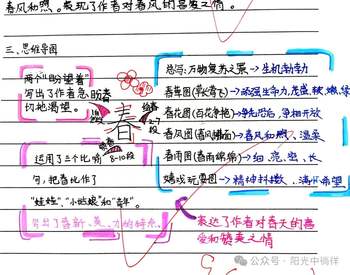 春风和煦。表现了作者对春风的喜爱之情。
三、思维导图
两个"盼望着"
写出了作者急盼着
切地渴望。
运用了三个比喻
句，把春比作了
"娃娃"，"小姑娘"和"青年"。
写出了春新、美、力的特点。
春
1段
绘春
2-7
段
8-10段
总写：万物复苏之景→生机勃勃
春花图(百花争艳)→争先恐后，争相开放
春风图(春风拂面)→春风和煦、温柔
春雨图(春雨绵绵)→细、亮、密、长
→精神抖擞、满怀希望
表达了作者对春天的喜
爱和赞美之情
公众号·阳光中徜徉